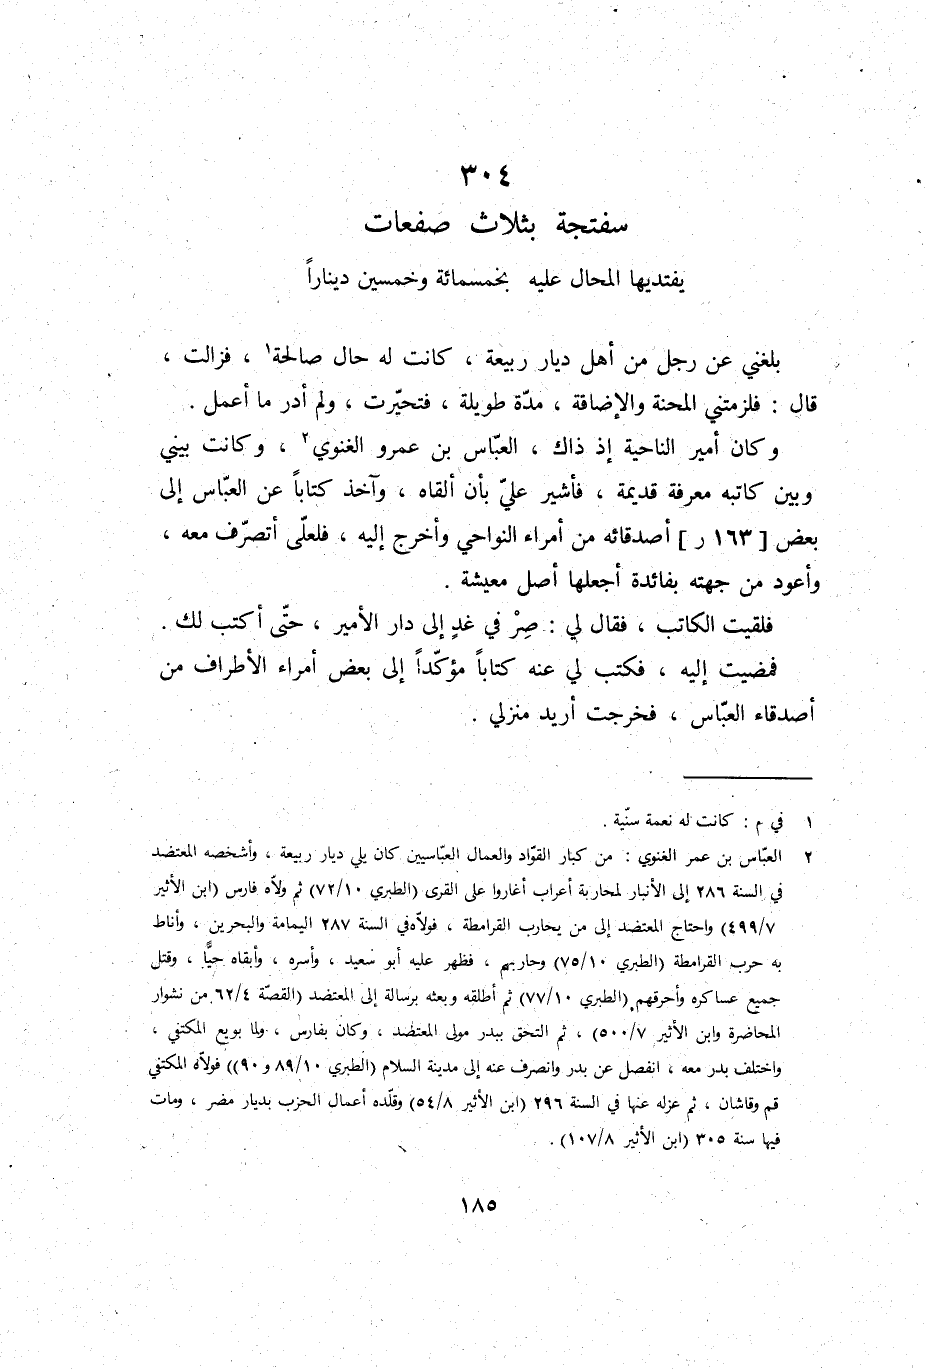 ٣٠٤
سفتجة بثلاث صفعات
يفتديها المحال عليه بخمسمائة وخمسين ديناراً
بلغني عن رجل من أهل ديار ربيعة ، كانت له حال صالحة١ ، فزالت ،
قال : فلزمتني المحنة والإضاقة ، مدّة طويلة ، فتحيّرت ، ولم أدر ما أعمل .
وكان أمير الناحية إذ ذاك ، العبّاس بن عمرو الغنوي٢ ، وكانت بيني
وبين كاتبه معرفة قديمة ، فأشير عليّ بأن ألقاه ، وآخذ كتاباً عن العبّاس إلى
بعض [ ١٦٣ ر ] أصدقائه من أمراء النواحي وأخرج إليه ، فلعلّى أتصرّف معه ،
وأعود من جهته بفائدة أجعلها أصل معيشة .
فلقيت الكاتب ، فقال لي : صِرْ في غدٍ إلى دار الأمير ، حتّى أكتب لك .
فمضيت إليه ، فكتب لي عنه كتاباً مؤكّداً إلى بعض أمراء الأطراف من
أصدقاء العبّاس ، فخرجت أريد منزلي .
١ في م : كانت له نعمة سنّية .
٢ العبّاس بن عمر الغنوي : من كبار القوّاد والعمال العبّاسيين كان يلي ديار ربيعة ، وأشخصه المعتضد
في السنة ٢٨٦ إلى الأنبار لمحاربة أعراب أغاروا على القرى (الطبري ٧٢/١٠) ثم ولاّه فارس (ابن الأثير
٤٩٩/٧) واحتاج المعتضد إلى من يحارب القرامطة ، فولاّه في السنة ٢٨٧ اليمامة والبحرين ، وأناط
به حرب القرامطة (الطبري ٧٥/١٠) وحاربهم ، فظهر عليه أبو سعيد ، وأسره ، وأبقاه حيًّا ، وقتل
جميع عساكره وأحرقهم (الطبري ٧٧/١٠) ثم أطلقه وبعثه برسالة إلى المعتضد (القصّة ٦٢/٤ من نشوار
المحاضرة وابن الأثير ٥٠٠/٧) ، ثم التحق ببدر مولى المعتضد ، وكان بفارس ، ولما بويع المكتفي ،
واختلف بدر معه ، انفصل عن بدر وانصرف عنه إلى مدينة السلام (الطبري ٨٩/١٠ و ٩٠)) فولاّه المكتفي
قم وقاشان ، ثم عزله عنها في السنة ٢٩٦ (ابن الأثير ٥٤/٨) وقلّده أعمال الحزب بديار مضر ، ومات
فيها سنة ٣٠٥ (ابن الأثير ١٠٧/٨) .
١٨٥